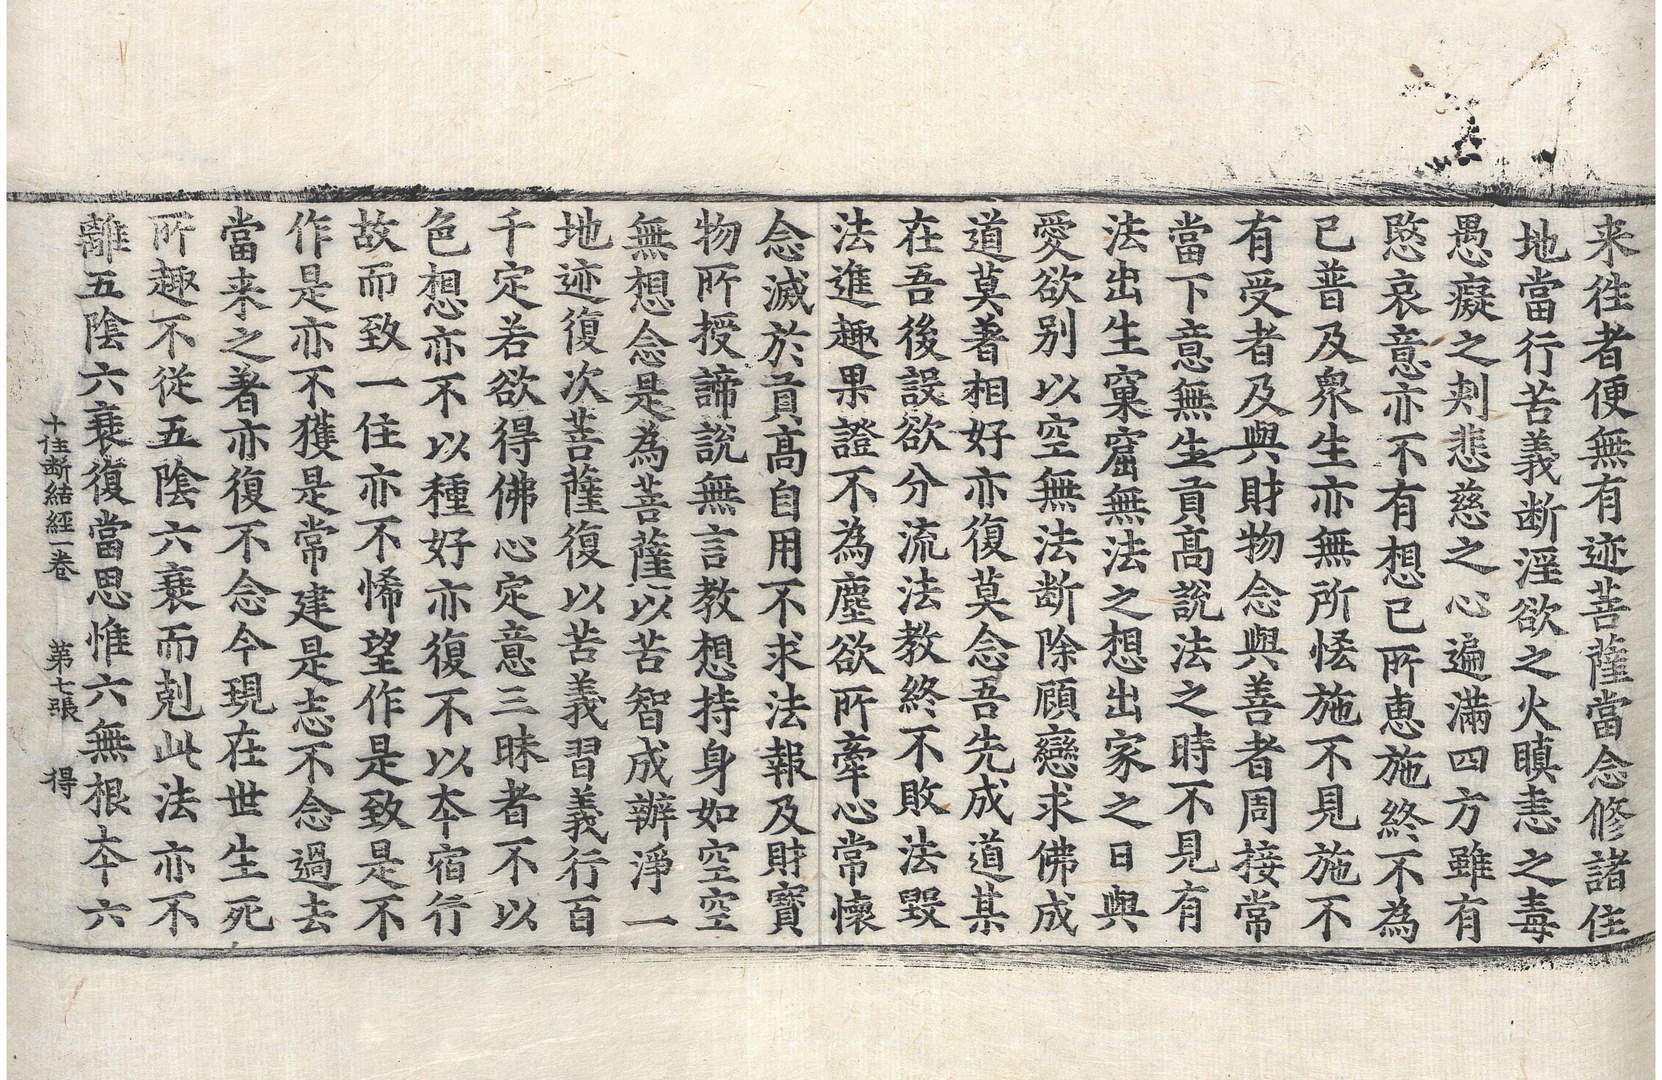 来往者便無有迹菩薩當念修諸住
地當行苦義断淫欲之火瞋恚之毒
愚癡之刾悲慈之心遍滿四方雖有
愍哀意亦不有想已所恵施終不為
已普及衆生亦無所恡施不見施不
有受者及與財物念與善者周接常
當下意無生貢髙說法之時不見有
法出生窠窟無法之想出家之日與
愛欲别以空無法断除顧戀求佛成
道莫著相好亦復莫念吾先成道某
在吾後設欲分流法教終不敗法毀
法進趣果證不為塵欲所牽心常懷
念滅於貢髙自用不求法報及財寳
物所授諦說無言教想持身如空空
無想念是為菩薩以苦智成辦淨一
地迹復次菩薩復以苦義習義行百
千定若欲得佛心定意三昧者不以
色想亦不以種好亦復不以夲宿行
故而致一住亦不悕望作是致是不
作是亦不獲是常建是志不念過去
當来之著亦復不念今現在世生死
所趣不從五陰六衰而剋此法亦不
離五陰六衰復當思惟六無根夲六
十住断結經一卷　第七張　得